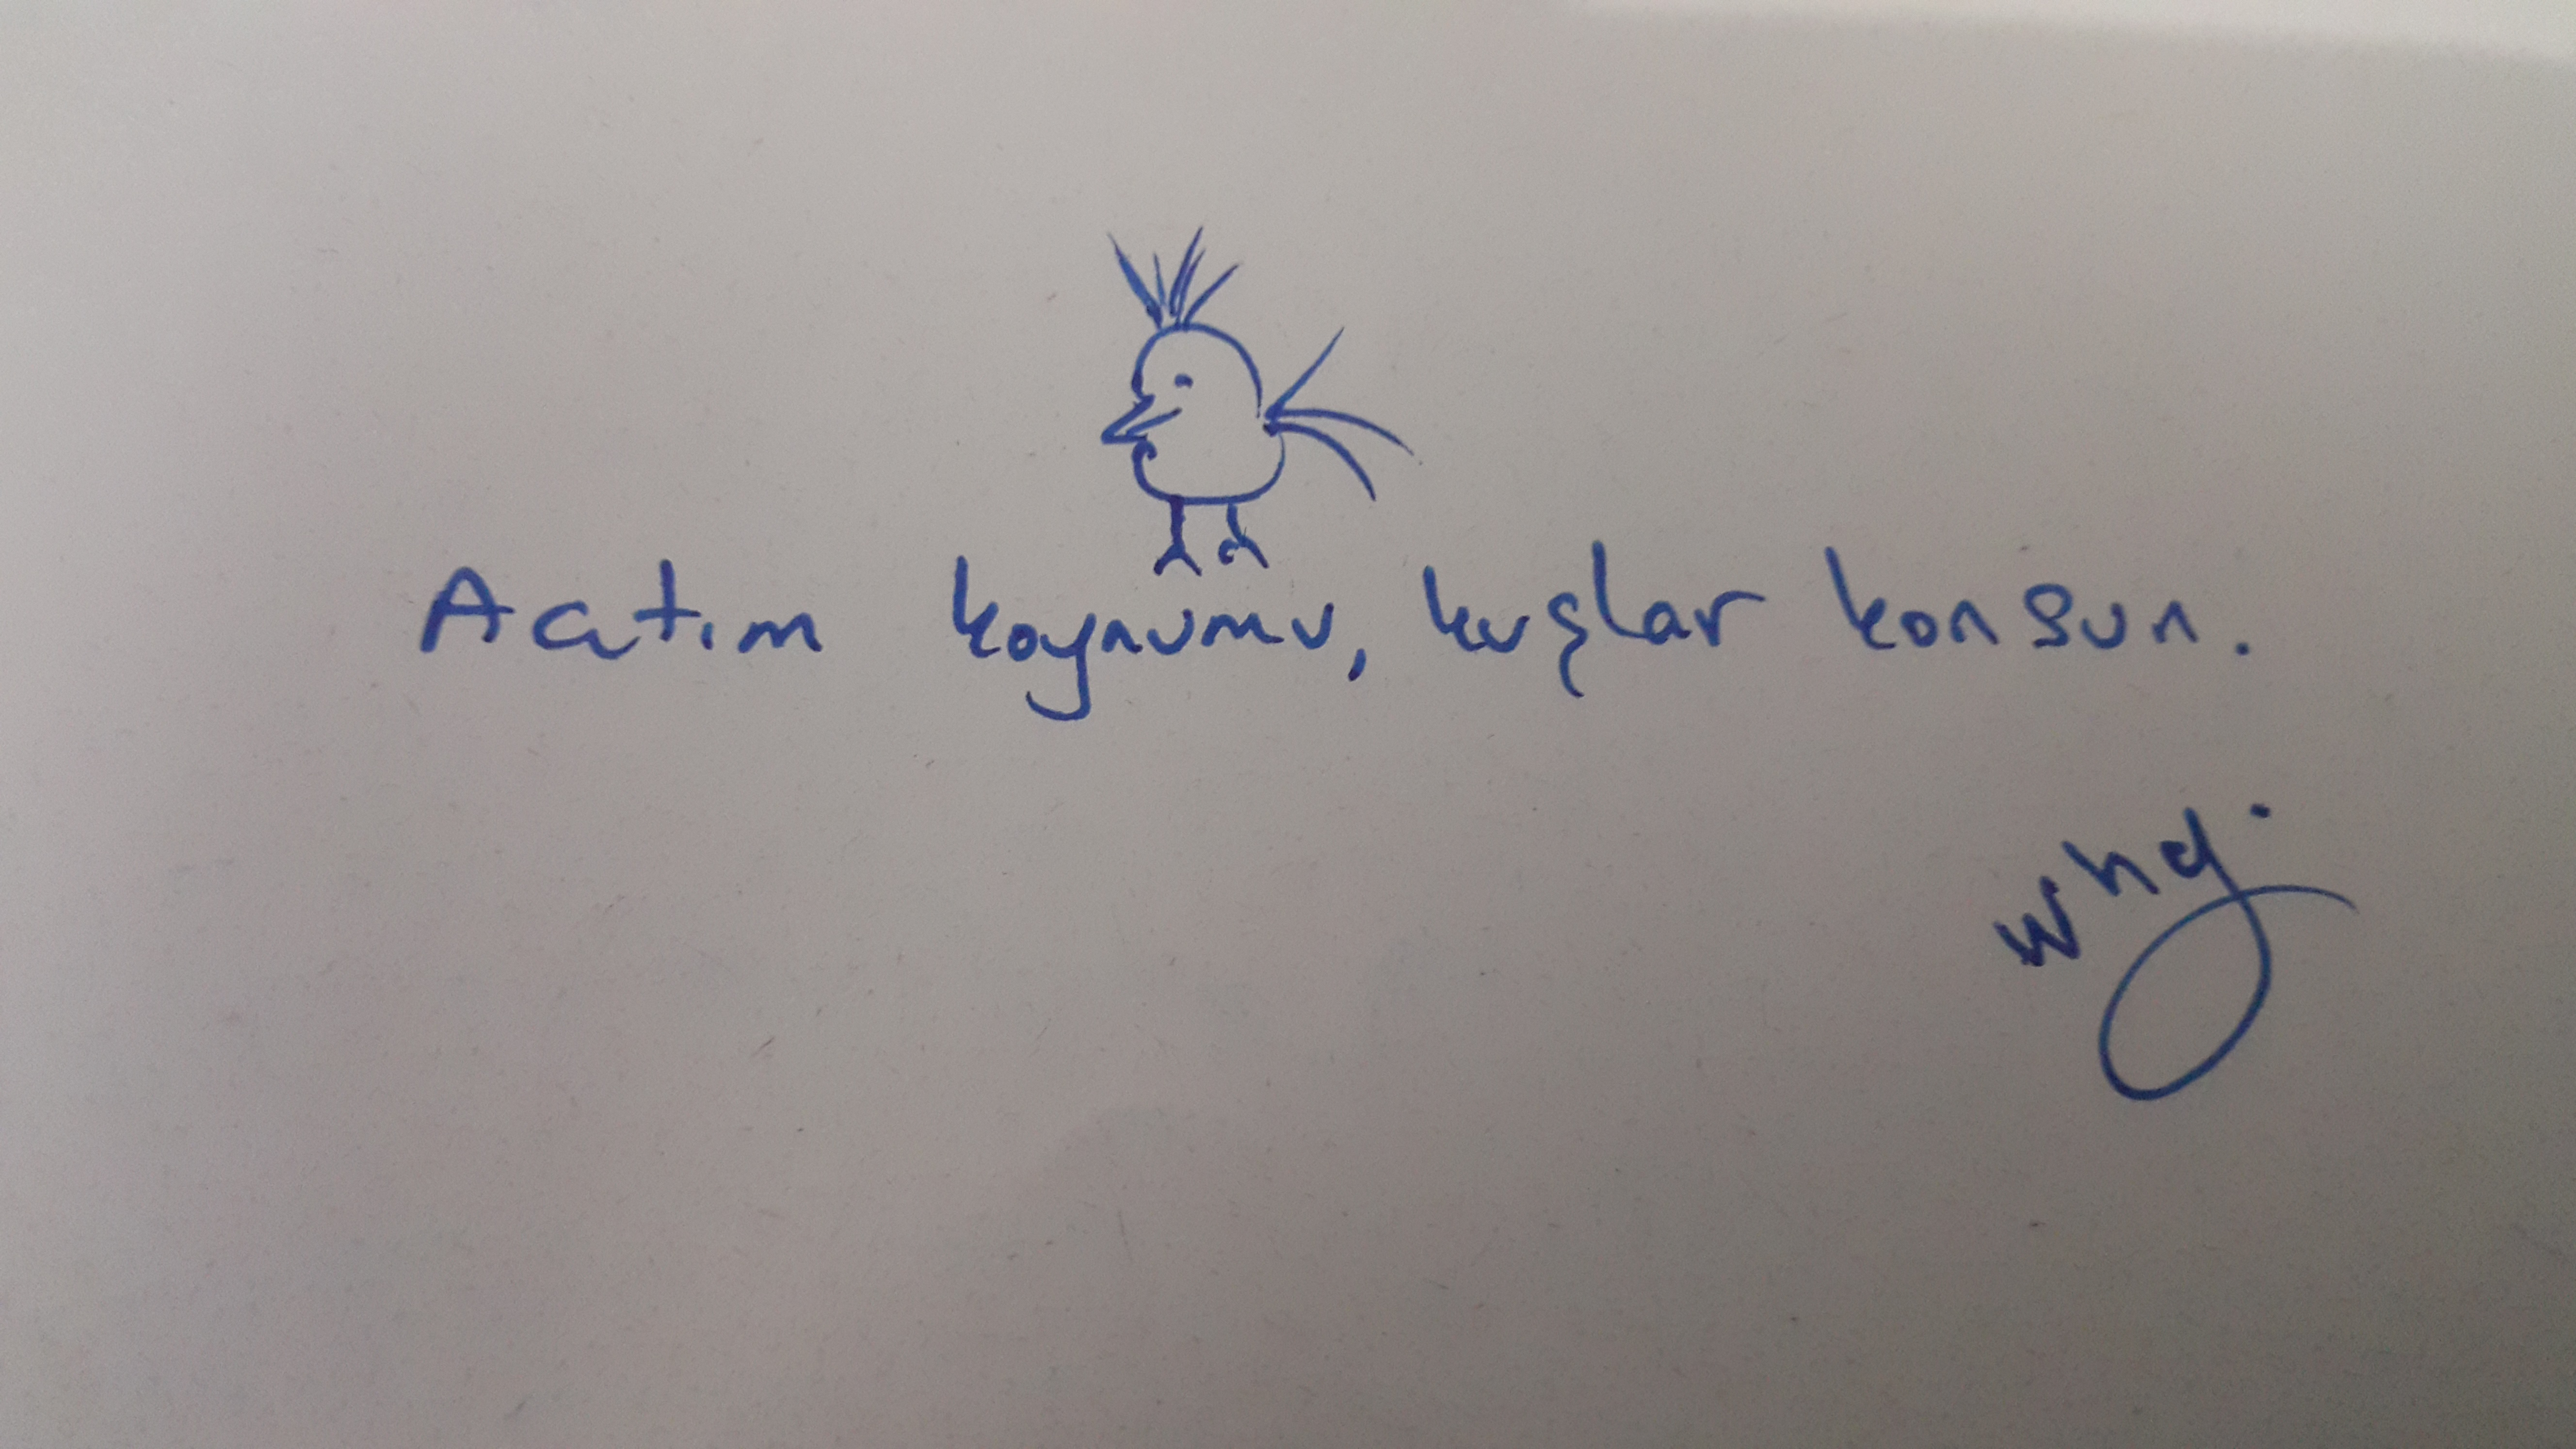 Actım koynumu, kuşlar konsun.
whj.